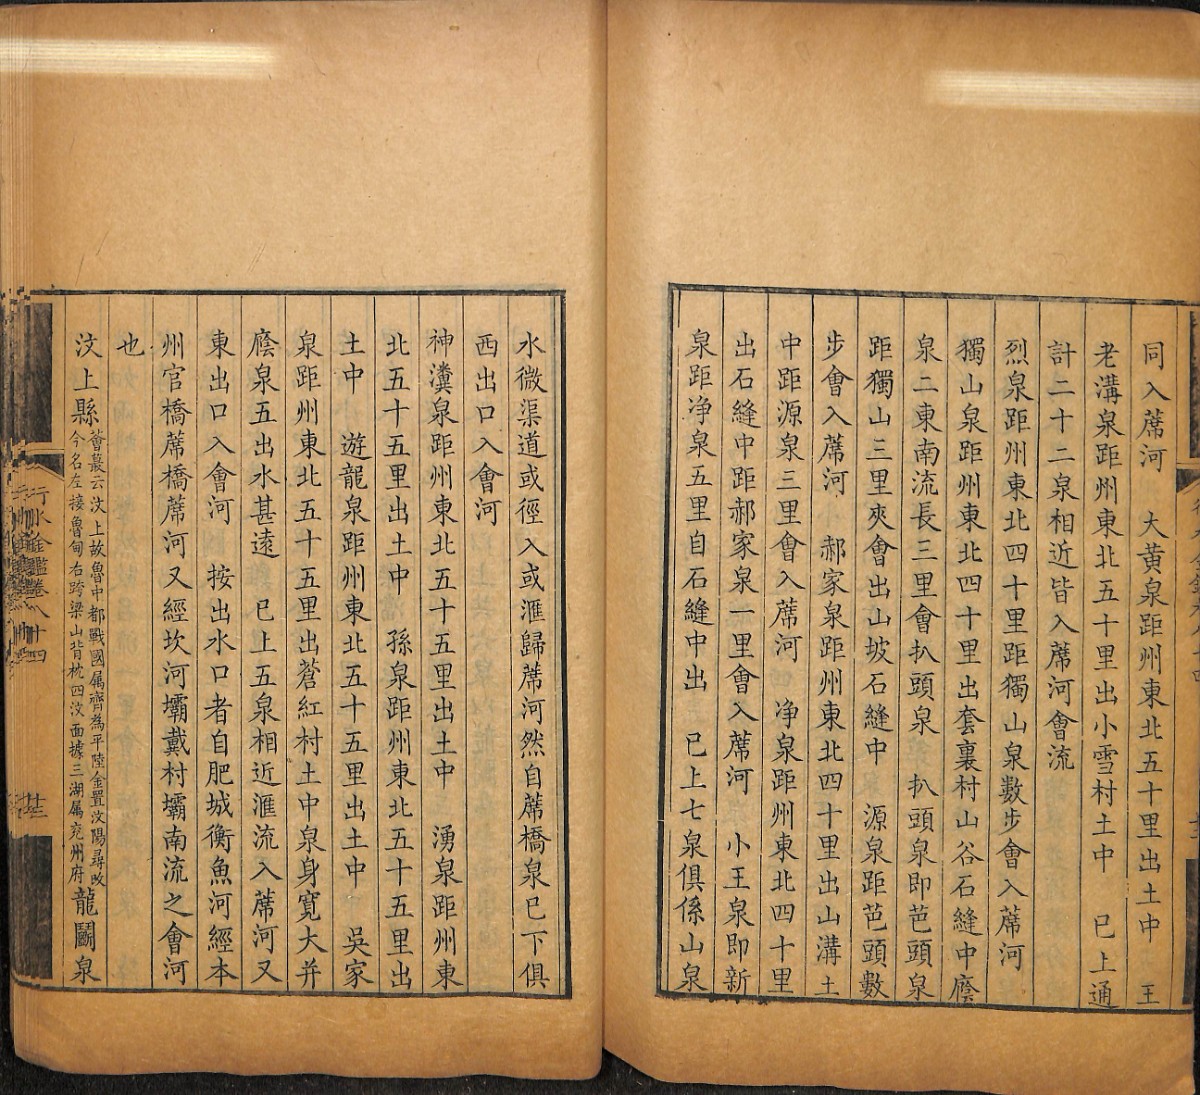 同入蓆河　大黄泉距州東北五十里出土中　王
老溝泉距州東北五十里出小雪村土中　已上通
計二十二泉相近皆入蓆河會流
烈泉距州東北四十里距獨山泉數步會入蓆河
獨山泉距州東北四十里出套裏村山谷石縫中廕
泉二東南流長三里會扒頭泉　扒頭泉即芭頭泉
距獨山三里夾會出山坡石縫中　源泉距芭頭數
步會入蓆河　郝家泉距州東北四十里出山溝土
中距源泉三里會入蓆河　净泉距州東北四十里
出石縫中距郝家泉一里會入蓆河　小王泉即新
泉距净泉五里自石縫中出　已上七泉俱係山泉
水微渠道或徑入或滙歸蓆河然自蓆橋泉已下俱
西出口入會河
神瀵泉距州東北五十五里出土中　湧泉距州東
北五十五里出土中　孫泉距州東北五十五里出
土中　遊龍泉距州東北五十五里出土中　吳家
泉距州東北五十五里出蒼紅村土中泉身寬大并
廕泉五出水甚遠　已上五泉相近滙流入蓆河又
東出口入會河　按出水口者自肥城衡魚河經本
州官橋蓆橋蓆河又經坎河壩戴村壩南流之會河
也
汶上縣薈蕞云汶上故魯中都戰國属齊為平陸金置汶陽尋改今名左接魯甸右跨梁山背枕四汶面據三湖属兖州府龍鬬泉
行水金鑑卷八十四